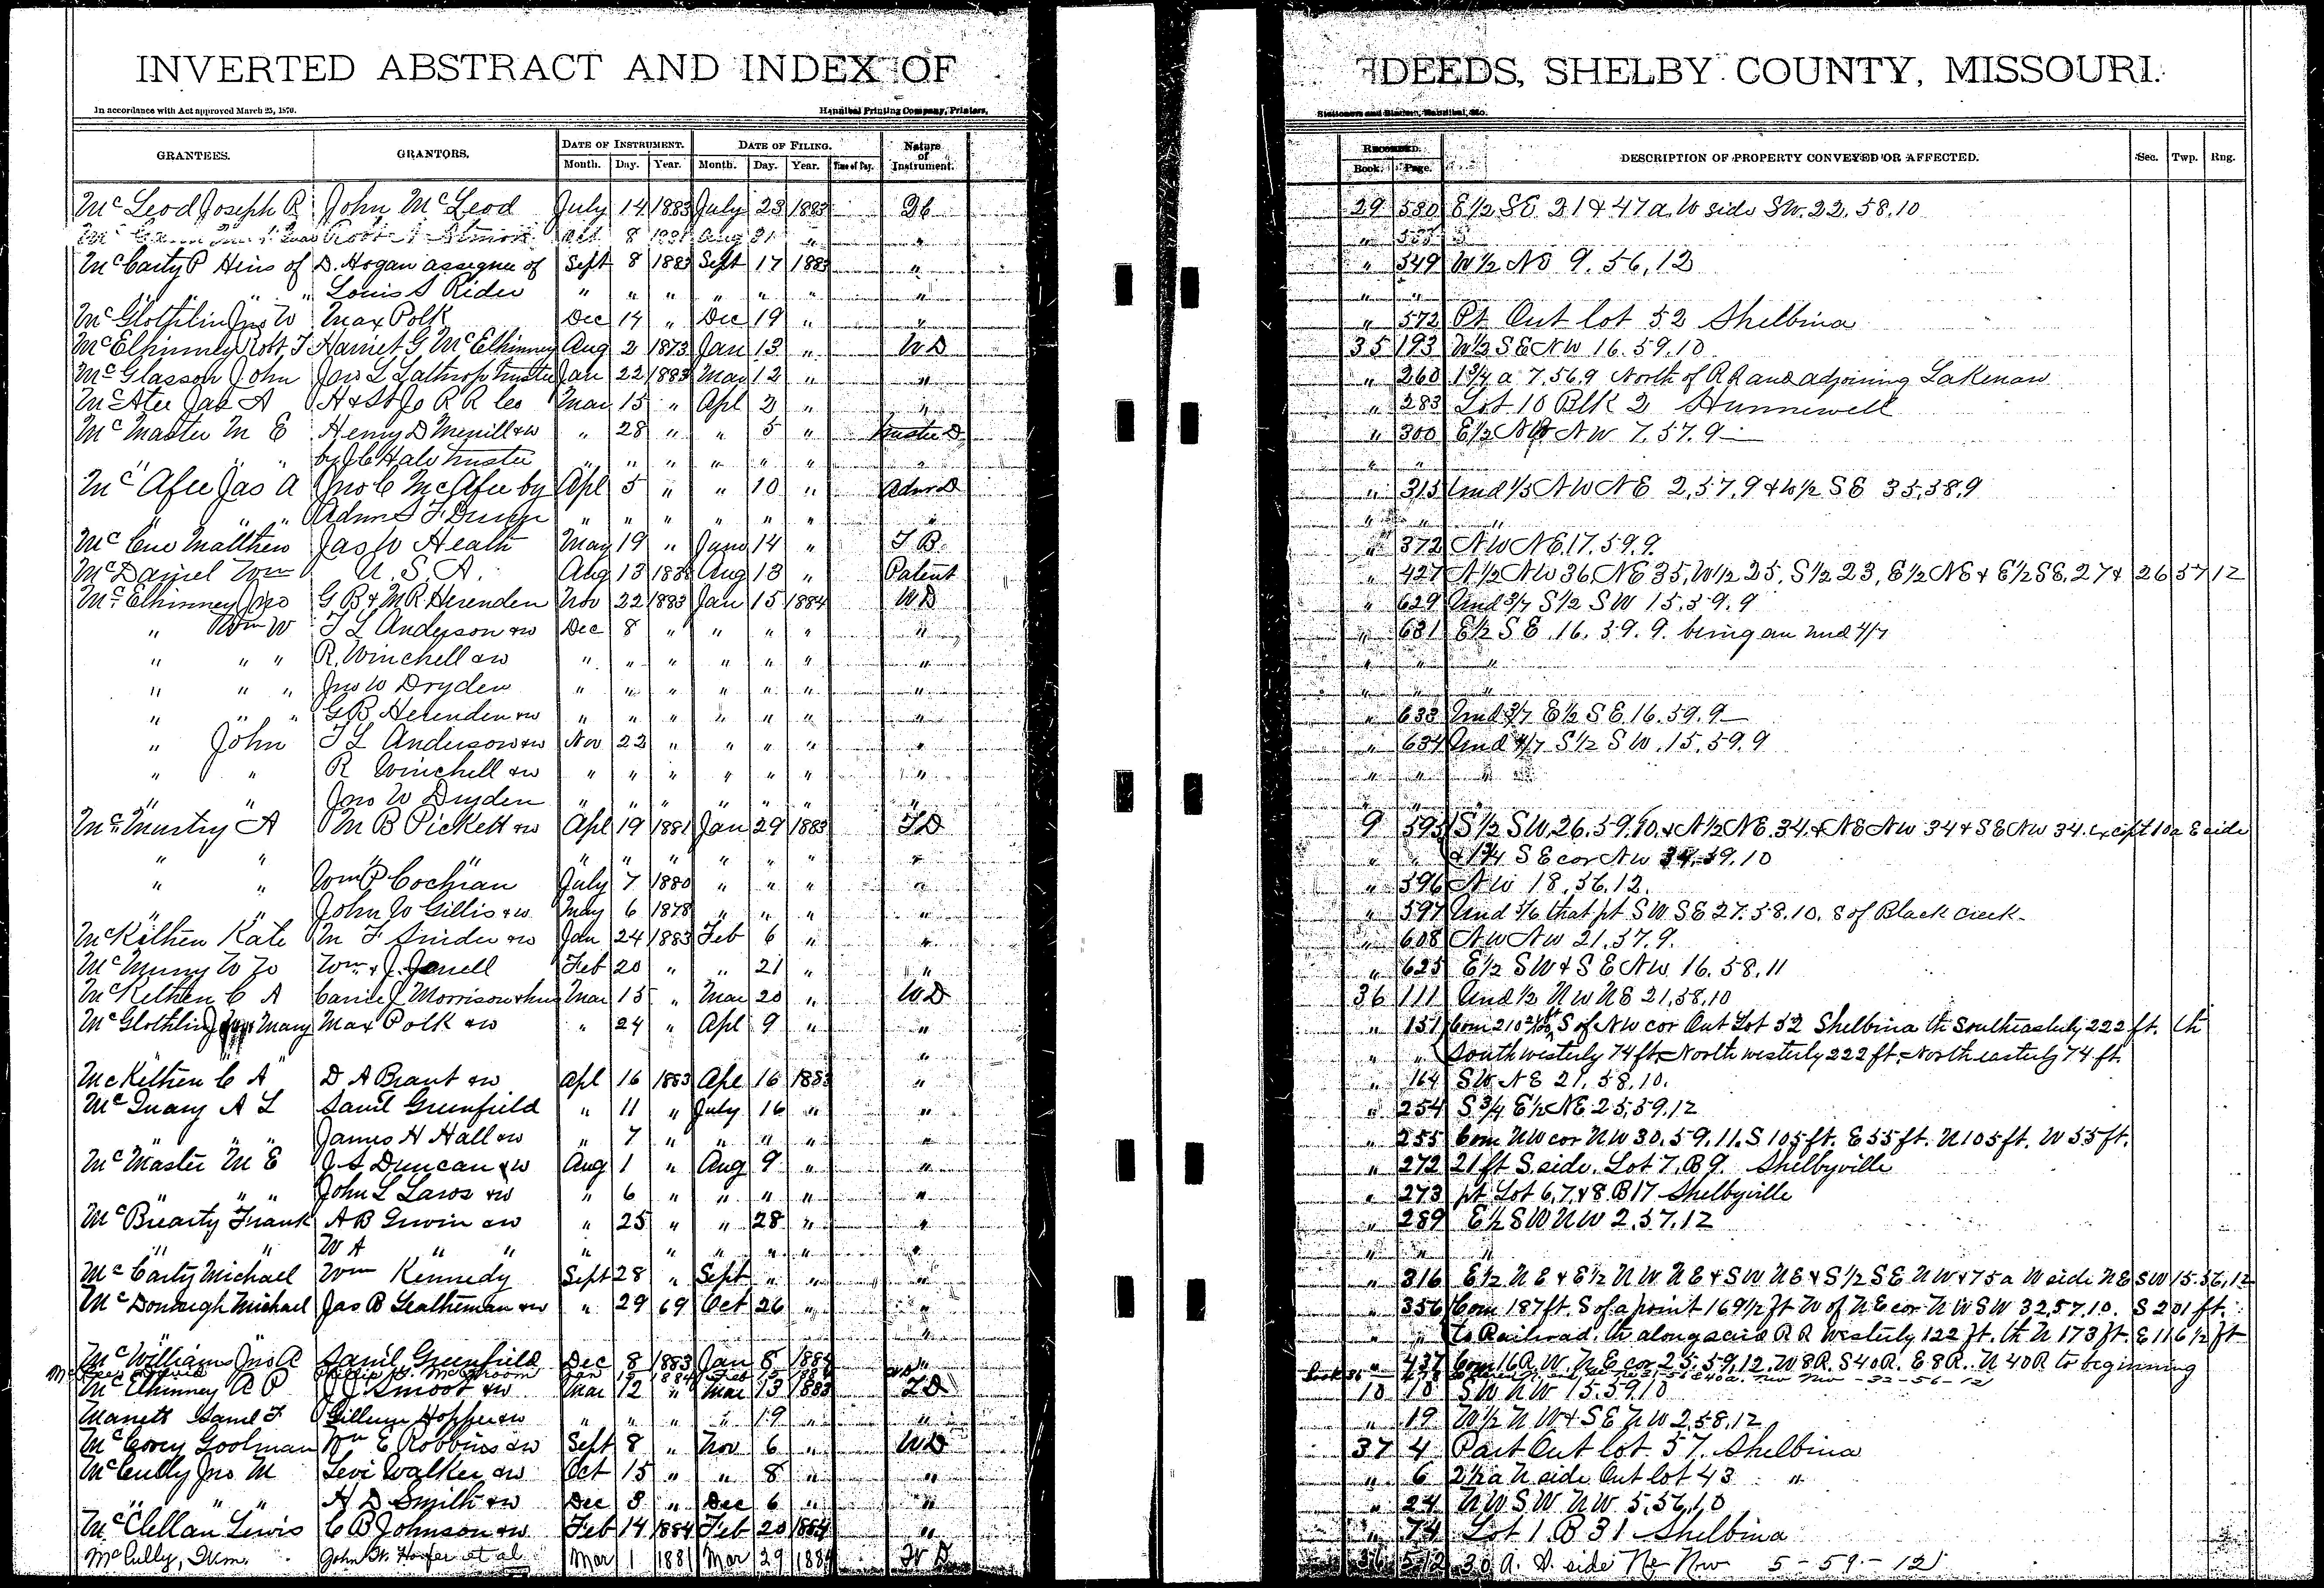 INVERTED ABSTRACT AND INDEX OF DEEDS, SHELBY COUNTY, MISSOURI.
In accordance with Act approved March 25, 1870. Hannibal Printing Company, Printers, Stationers and Binders, Hannibal, Mo.
GRANTEES. GRANTORS. DATE OF INSTRUMENT. DATE OF FILING. Nature of Instrument. RECORDED. DESCRIPTION OF PROPERTY CONVEYED OR AFFECTED. Sec. Twp. Rng.
Month. Day. Year. Month. Day. Year. Time of Day. Book. Page.
McLeod Joseph R John McLeod July 14 1883 July 23 1883 29 530 E½ SE 21 & 47a. W side SW. 22. 58. 10
Oct 8 Aug 31 " " "
McCarty P Heirs of D. Hogan assignee of Sept 8 1883 Sept 17 1883 " " 549 W½ NE 9. 56, 12
" " " Louis S Rider " " " " " " " " "
McGlothlin Jno W Max Polk Dec 14 " Dec 19 " " " 572 Pt Out lot 52 Shelbina
McElhinney Robt J Harriet G McElhinney Aug 2 1873 Jan 13 " WD 35 193 W½ SE NW 16. 59. 10
McGlasson John Jno L Lathrop trustee Jan 22 1883 Mar 12 " " " 260 1¾ a 7. 56. 9 North of RR and adjoining Lakenan
McAtee Jas A H & St Jo RR Co Mar 15 " Apl 2 " " " 283 Lot 10 Blk 2 Hunnewell
McMaster M E Henry D Merrill & w " 28 " " 5 " Trustee D " 300 E½ NW 7. 57. 9
" " " by J C Hale trustee " " " " " " " " "
McAfee Jas A Jno C McAfee by Apl 5 " " 10 " Adm D " 315 Und 1/5 NW NE 2, 57, 9 & W½ SE 35, 58, 9
" " " Admr S F Dunn " " " " " " " " " "
McCue Matthew Jas W Heath May 19 " June 14 " T B. " 372 NW NE. 17. 59. 9.
McDaniel Wm U. S. A. Aug 13 Aug 13 " Patent " 427 N½ NW 36, NE 35, W½ 25, S½ 23, E½ NE & E½ SE, 27 & 26 57 12
McElhinney Jno G B & M R Herenden Nov 22 1883 Jan 15 1884 WD " 629 Und 3/7 S½ SW 15. 59. 9
" Wm W T L Anderson & w Dec 8 " " " " " " 631 E½ SE. 16. 59. 9. being an und 4/7
" " " R. Winchell & w " " " " " " " " " "
" " " Jno W Dryden " " " " " " " " " "
" " " G B Herenden & w " " " " " " " " 633 Und 3/7 E½ SE. 16. 59. 9
" John T L Anderson & w Nov 22 " " " " " " 634 Und 4/7 S½ SW. 15. 59. 9
" " R Winchell & w " " " " " " " " " "
" " Jno W Dryden " " " " " " " " "
McMurtry A M B Pickett & w Apl 19 1881 Jan 29 1883 TD 9 595 S½ SW. 26. 59. 10. & N½ NE. 34. & NE NW 34 & SE NW 34. except 10a E side
" " " " " " " " " " " " " & 1¾ SE cor NW 34. 59. 10
" " Wm P Cochran July 7 1880 " " " " " 596 NW 18. 56. 12.
" " John W Gillis & w May 6 1878 " " " " " 597 Und 5/6 that pt SW SE 27. 58. 10. S of Black creek
McKethen Kate M F Snider & w Jan 24 1883 Feb 6 " " " 608 NW NW 21. 57. 9.
McMurry W W Wm & J. Jewell Feb 20 " " 21 " " " 625 E½ SW & SE NW 16. 58. 11
McKethen C A Carrie J Morrison & hus Mar 15 " Mar 20 " WD 36 111 Und ½ NW NE 21, 58, 10
McGlothlin Mary Max Polk & w " 24 " Apl 9 " " " 151 Com 210 ft S of NW cor Out Lot 52 Shelbina th Southeasterly 222 ft. th
" " " Southwesterly 74 ft. Northwesterly 222 ft. Northeasterly 74 ft.
McKethen C A D A Brant & w Apl 16 1883 Apl 16 1883 " " 164 SW NE 21. 58. 10.
McQuary A L Saml Greenfield " 11 " July 16 " " " 254 S ¾ E½ NE 25. 59. 12
" " " James H Hall & w " 7 " " " " " " 255 Com NW cor NW 30. 59. 11. S 105 ft. E 55 ft. N 105 ft. W 55 ft.
McMaster M E J S Duncan & w Aug 1 " Aug 9 " " " 272 21 ft S. side. Lot 7. B 9. Shelbyville
" " " John L Laws & w " 6 " " " " " " 273 pt Lot 6, 7, & 8. B 17 Shelbyville
McBrearty Frank A B Irwin & w " 25 " " 28 " " " 289 E½ SW NW 2. 57. 12
" " W A " " " " " " " " " " "
McCarty Michael Wm Kennedy Sept 28 " Sept " " " " 316 E½ NE & E½ NW NE & SW NE & S½ SE NW & 75a W side NE SW 15. 56, 12
McDonough Michael Jas B Leatheman & w " 29 69 Oct 26 " " " 356 Com 187 ft. S of a point 169½ ft W of NE cor NW SW 32, 57. 10. S 201 ft.
" " " to Railroad. th along said RR westerly 122 ft. th N 173 ft. E 116½ ft
McWilliams Jno A Saml Greenfield Dec 8 1883 Jan 8 1884 " " 437 Com 16 R. W. NE cor 25. 59. 12. W 8 R. S 40 R. E 8 R. N 40 R to beginning
McElhinney A P J J Smoot & w Mar 12 " Mar 13 1883 TD 10 10 SW NW 15. 59. 10
Manett Saml F Gillum Hopper & w " " " " 19 " " " 19 W½ NW & SE NW 2. 58. 12
McCovey Goolman Wm E Robbins & w Sept 8 " Nov 6 " WD 37 4 Part Out lot. 57. Shelbina
McCully Jno M Levi Walker & w Oct 15 " " 8 " " " 6 2½ a N side Out lot 43 "
" " " H D Smith & w Dec 3 " Dec 6 " " " 24 NW SW NW 5. 56. 10
McClellan Lewis C B Johnson & w Feb 14 1884 Feb 20 1884 " " 74 Lot 1. B 31 Shelbina
McCully, Wm. John W. Hoofer et al Mar 1 1881 Mar 29 1884 W D 36 512 30 a. S. side Ne Nw 5 - 59 - 12